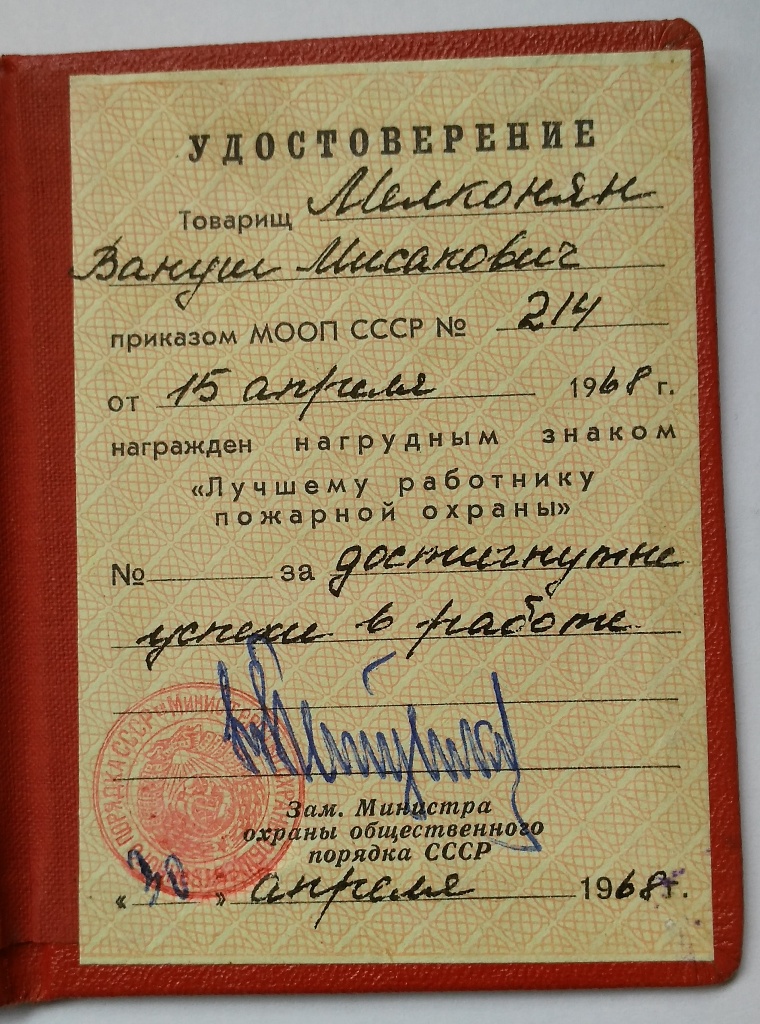 УДОСТОВЕРЕНИЕ
Товарищ Мелконян
Вануш Мисакович
приказом МООП СССР № 214
от 15 апреля 1968 г.
награжден нагрудным знаком
«Лучшему работнику
пожарной охраны»
№ за достигнутые
успехи в работе
Зам. Министра
охраны общественного
порядка СССР
«30» апреля 1968 г.